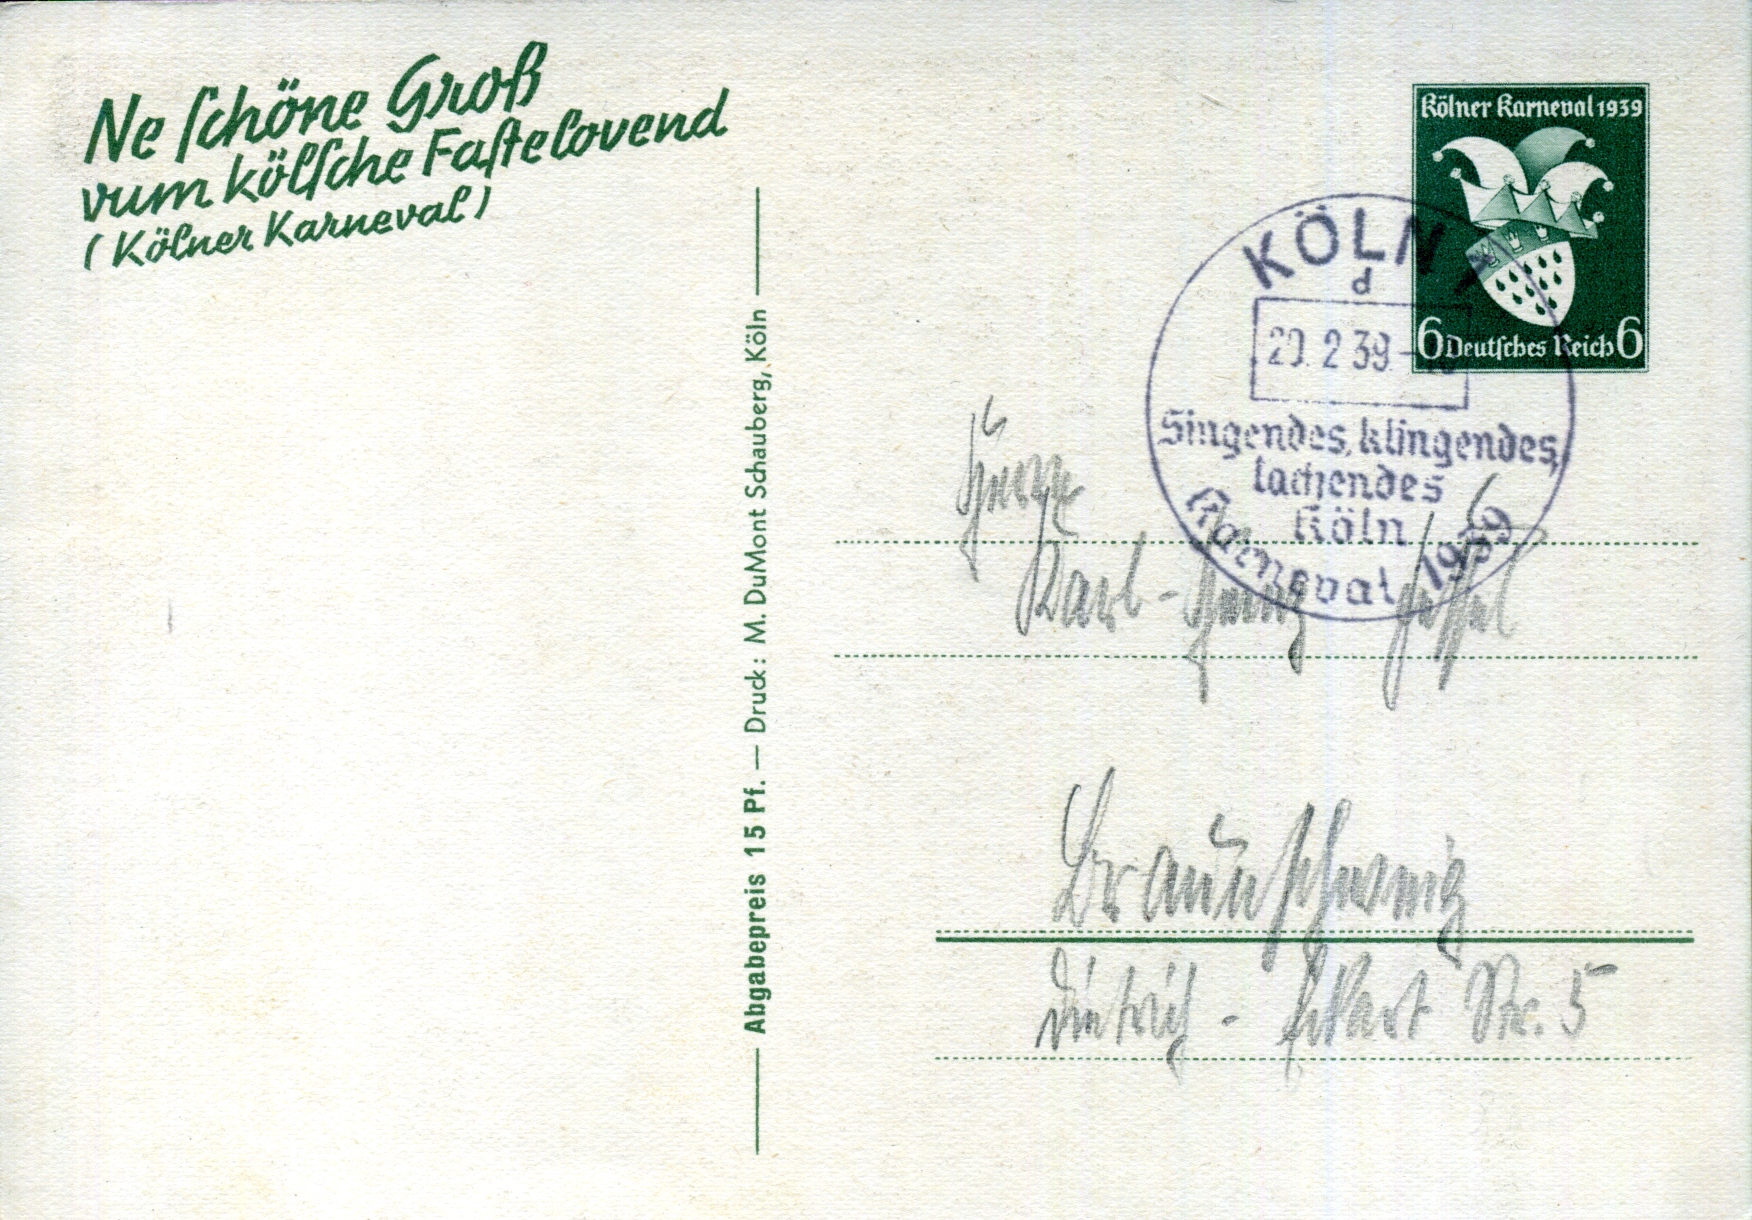 Ne schöne Groß
vum kölsche Fastelovend
(Kölner Karneval)
Abgabepreis 15 Pf. — Druck: M. DuMont Schauberg, Köln
Kölner Karneval 1939
6 Deutsches Reich 6
KÖLN
d
20.2.39.
Singendes, klingendes,
lachendes
Köln
Karneval 1939
Karl-Heinz
Braunschweig
Dietrich-Eckart Str. 5